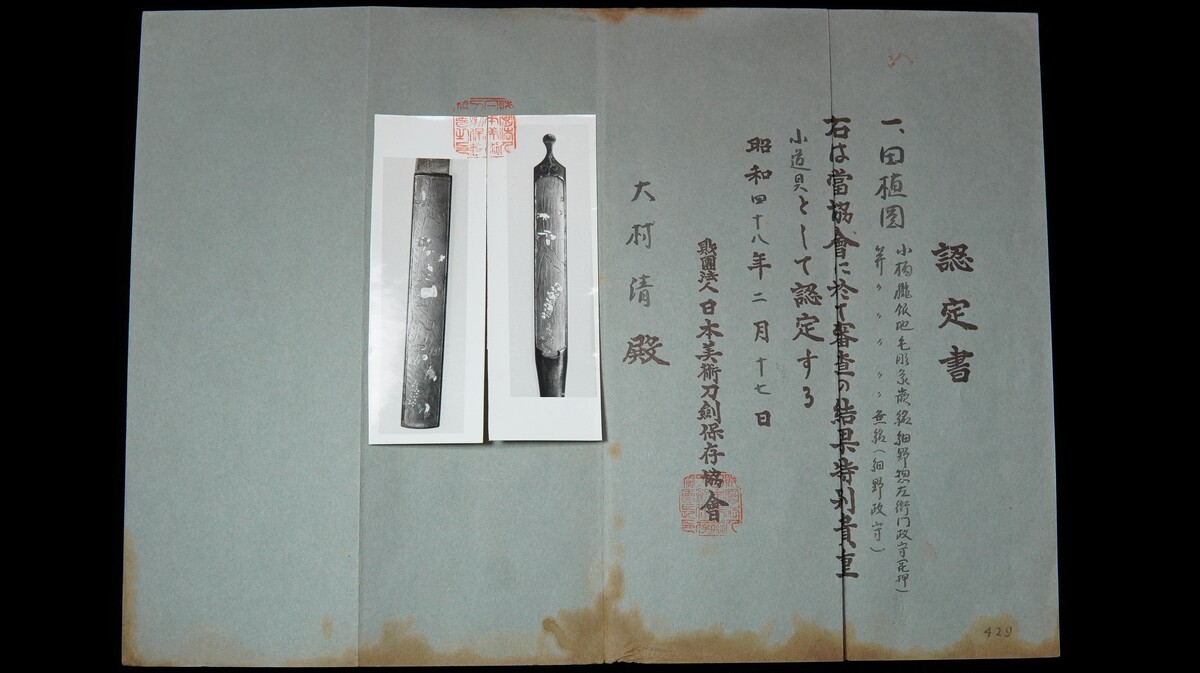 認定書
一、田植図
小柄 朧銀地毛彫象嵌銘細野惣左衛門政守花押)
笄 〃 〃 〃 〃 無銘(細野政守)
右は當協會に於て審査の結果特別貴重
小道具として認定する
昭和四十八年二月十七日
財團法人日本美術刀劍保存協會
大村清殿
429